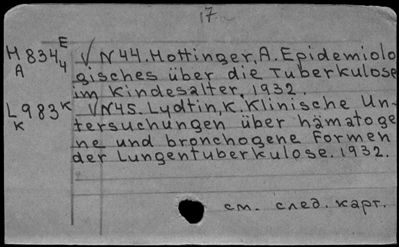 17.
H834 E √N44. Hottinger, A. Epidemiolo
A 4 gisches über die Tuberkulose
im Kindesalter. 1932.
L983 K √N45. Lydtin, K. Klinische Un-
K tersuchungen über hämatoge
ne und bronchogene Formen
der Lungentuberkulose. 1932.
см. след. карт.